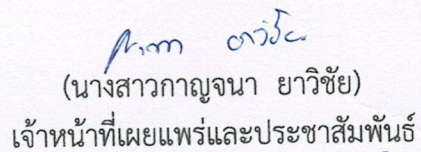 (นางสาวกาญจนา ยาวิชัย)
เจ้าหน้าที่เผยแพร่และประชาสัมพันธ์